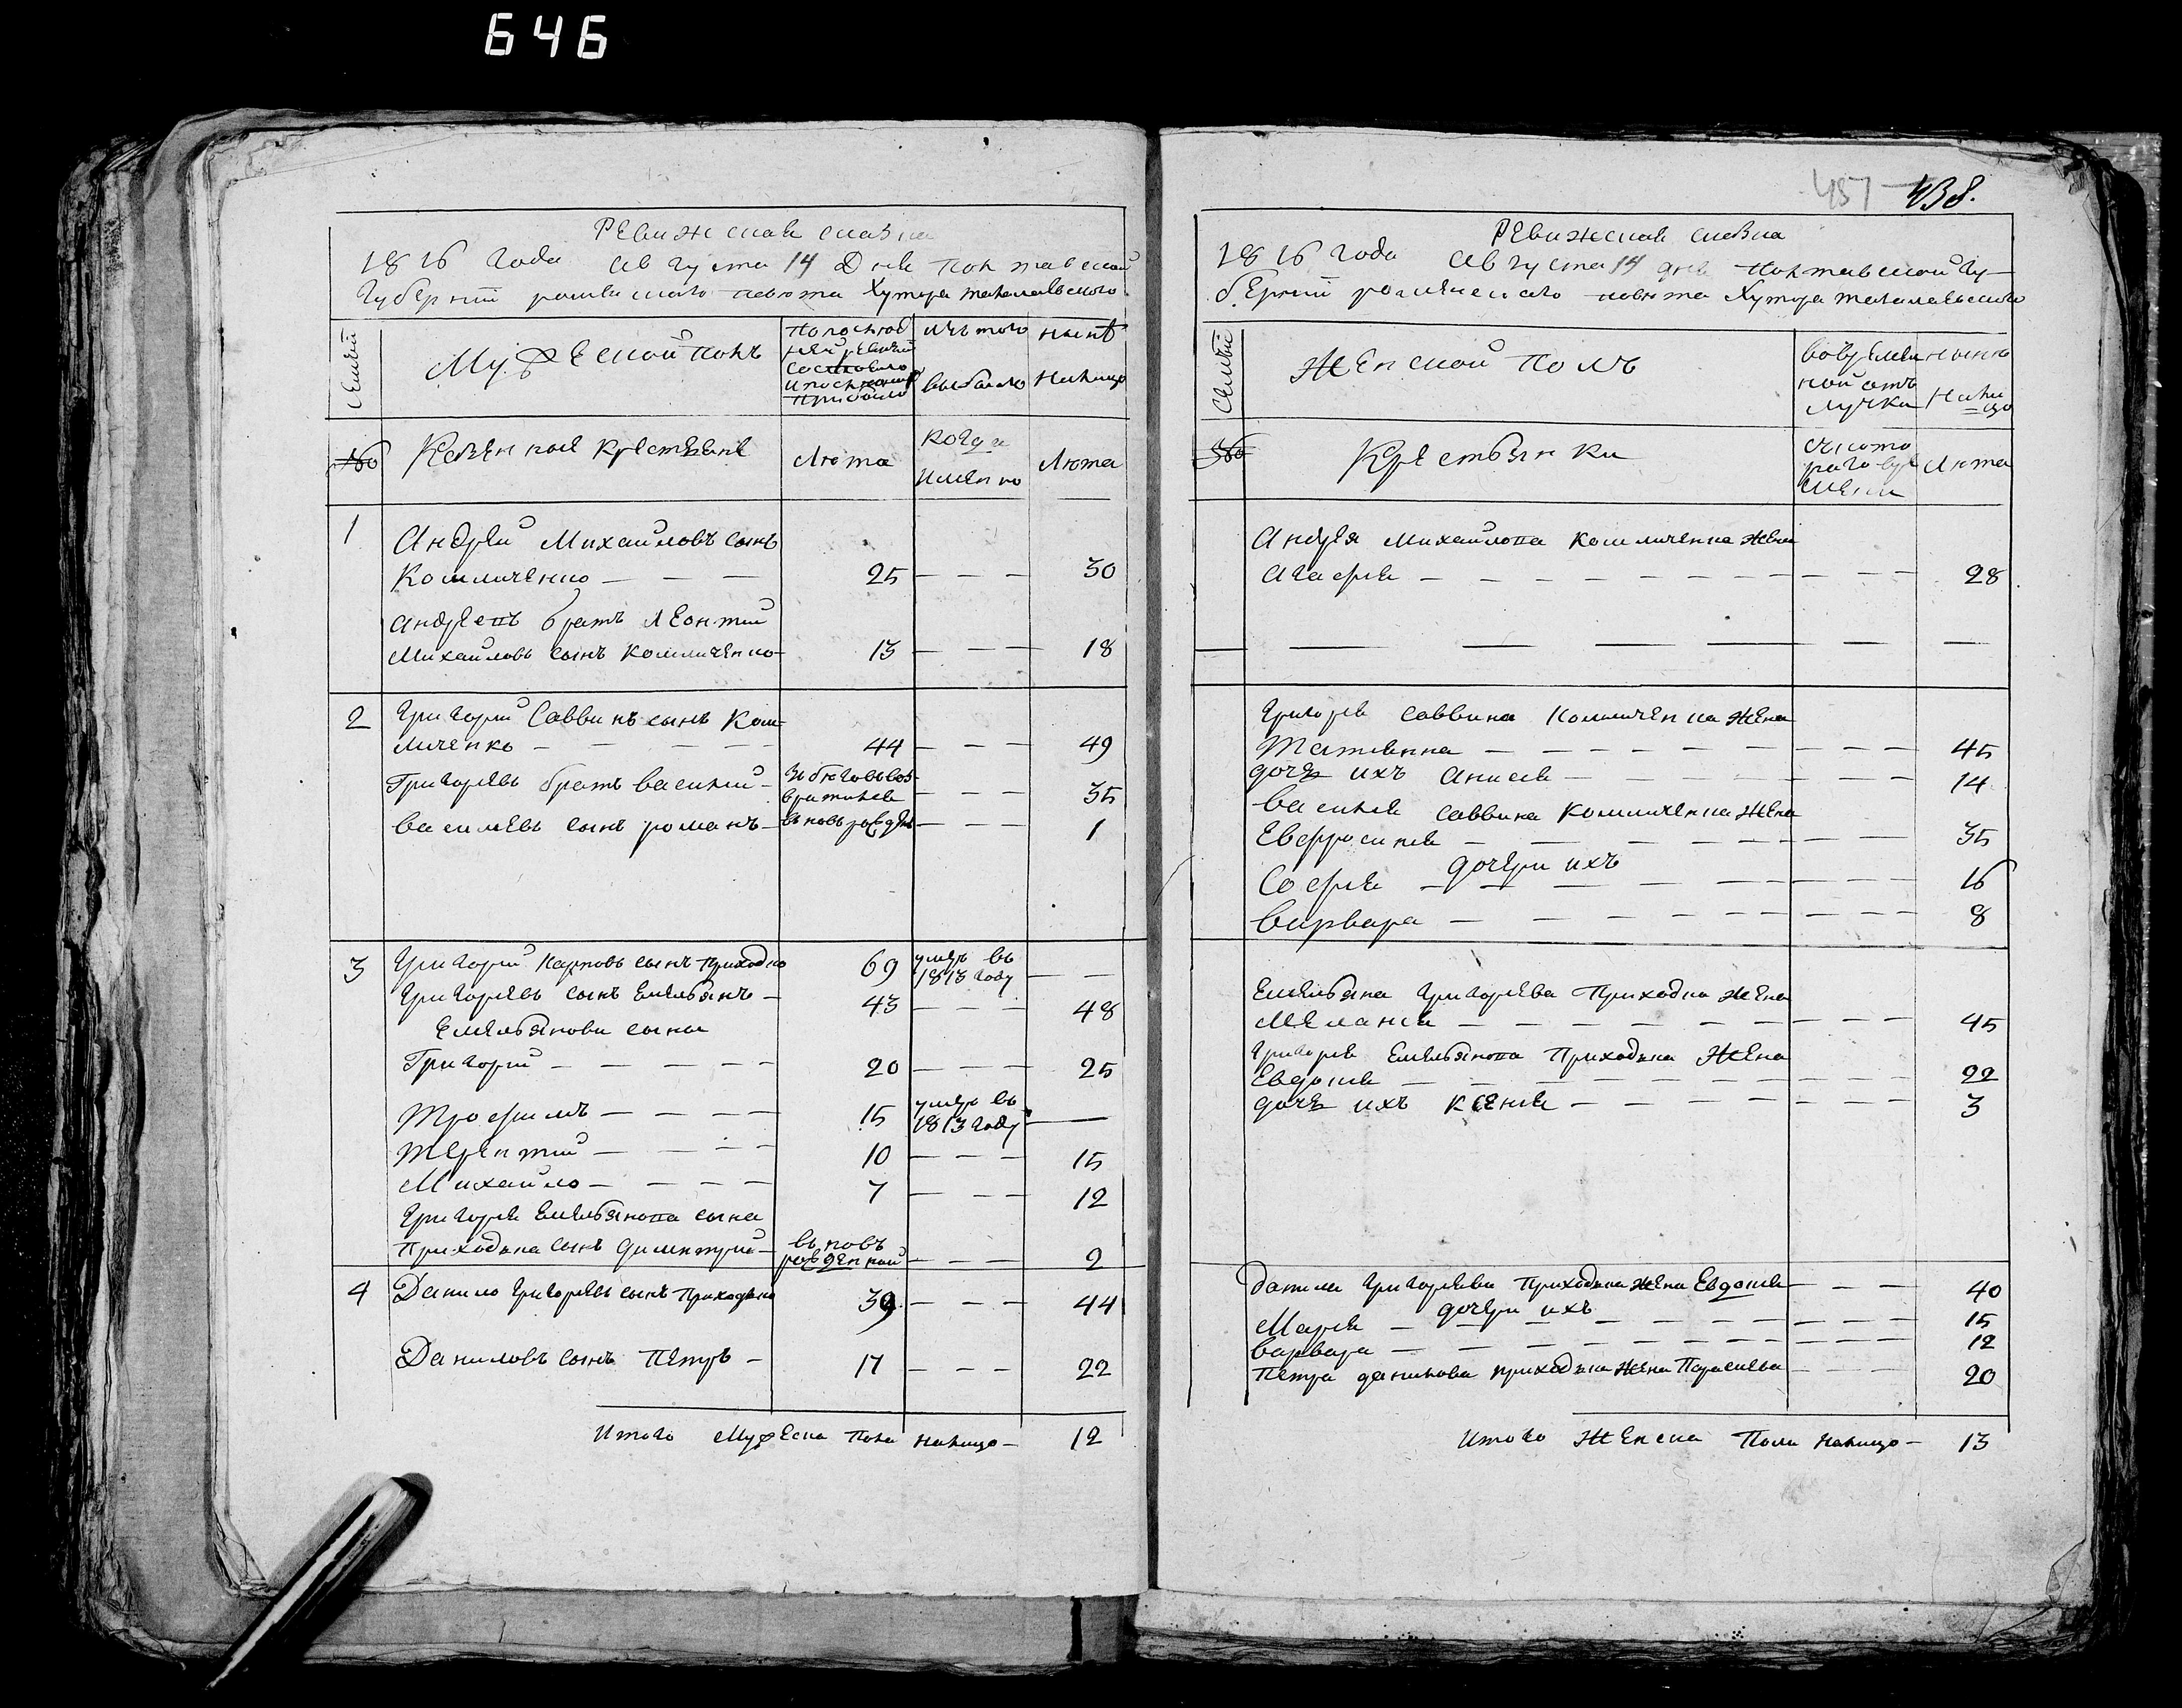 646
457 438.
Ревижская сказка
1816 года августа 14 дня Полтавской
Губернии роменского повѣта Хутора
Семьи
Мужеской полъ
По последней ревизии состояло и после того прибыло
изъ того выбыло
нынѣ налицо
№
Казенные крестьяне
Лѣта
когда именно
Лѣта
1 Андрей Михайловъ сынъ
Кошличенко — — — 25 — — — 30
андреевъ братъ Леонтий
Михайловъ сынъ Кошличенко — 13 — — — 18
2 Григорий Саввинъ сынъ Кош-
личенко — — — 44 — — — 49
Григорьевъ братъ василий — из бѣговъ воз-
вратился — — — 35
васильевъ сынъ романъ — вновь рожден — — — 1
3 Григорий Карповъ сынъ Приходко 69 умеръ въ
1813 году — —
Григорьевъ сынъ Емельянъ — 43 — — — 48
Емельянови сыны
Григорий — — — 20 — — — 25
Трофимъ — — — 15 умеръ въ
1813 году —
Терентий — — — 10 — — — 15
Михайло — — — 7 — — — 12
Григория Емельянова сына
Приходька сынъ димитрий — вновь
рожденной — — — 2
4 Данило Григорьевъ сынъ Приходько 39 — — — 44
Даниловъ сынъ Петръ — 17 — — — 22
Итого Мужеска Пола налицо — 12
Ревижская сказка
1816 года августа 14 дня Полтавской Гу-
бернии роменского повѣта Хутора
Семьи
Женской полъ
во временной отлучки
нынѣ налицо
№
Крестьянки
съ которого времени
Лѣта
Андрея Михайлова Кошличенка жена
Агафия — — — 28
— — — — — —
Григория Саввина Кошличенка жена
Татиянна — — — 45
дочь ихъ Анисия — — — 14
василия саввина Кошличенка жена
Евфросиния — — — 35
дочери ихъ
София — — — 16
варвара — — — 8
Емельяна Григорьева Приходка жена
Мелания — — — 45
Григория Емельянова Приходька жена
Евдокия — — — 22
дочь ихъ Ксения — — — 3
данила Григорьева Приходька жена Евдокия — — — 40
дочери ихъ
Мария — — — 15
варвара — — — 12
Петра данилова приходька жена Параскева — — — 20
Итого Женска Пола налицо — 13